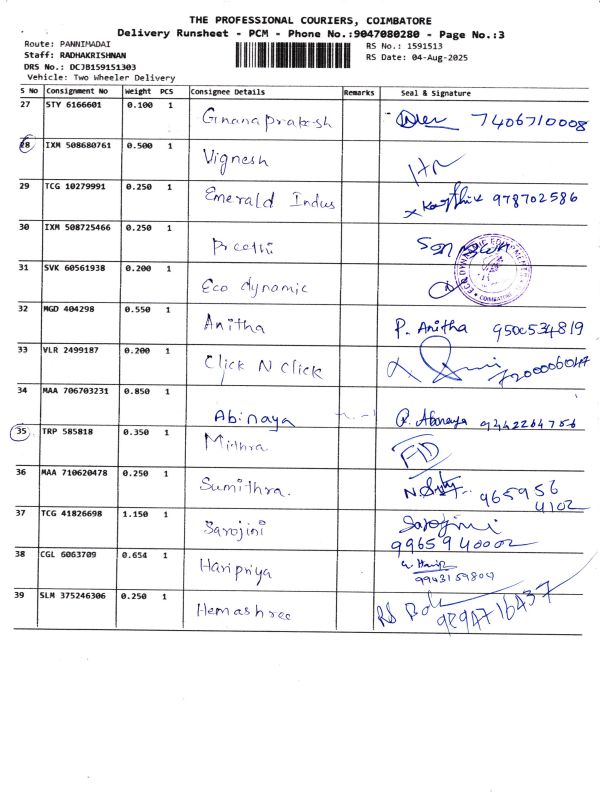 THE PROFESSIONAL COURIERS, COIMBATORE
Delivery Runsheet - PCM - Phone No.:9047080280 - Page No.:3
Route: PANNIMADAI
RS No.: 1591513
Staff: RADHAKRISHNAN
RS Date: 04-Aug-2025
DRS No.: DCJB159151303
Vehicle: Two Wheeler Delivery
S No Consignment No Weight PCS Consignee Details Remarks Seal & Signature
27 STY 6166601 0.100 1 Gnanaprakash 7406710008
28 IXM 508680761 0.500 1 Vignesh
29 TCG 10279991 0.250 1 Emerald Indus 978702586
30 IXM 508725466 0.250 1 Preethi
31 SVK 60561938 0.200 1 Eco dynamic
COIMBATORE
32 MGD 404298 0.550 1 Anitha P. Anitha 9500534819
33 VLR 2499187 0.200 1 Click N click
34 MAA 706703231 0.850 1 Abinaya
35 TRP 585818 0.350 1 Mithra
36 MAA 710620478 0.250 1 Sumithra. 965956
4102
37 TCG 41826698 1.150 1 Sarojini Sarojini
9965940002
38 CGL 6063709 0.654 1 Haripriya
39 SLM 375246306 0.250 1 Hemashree